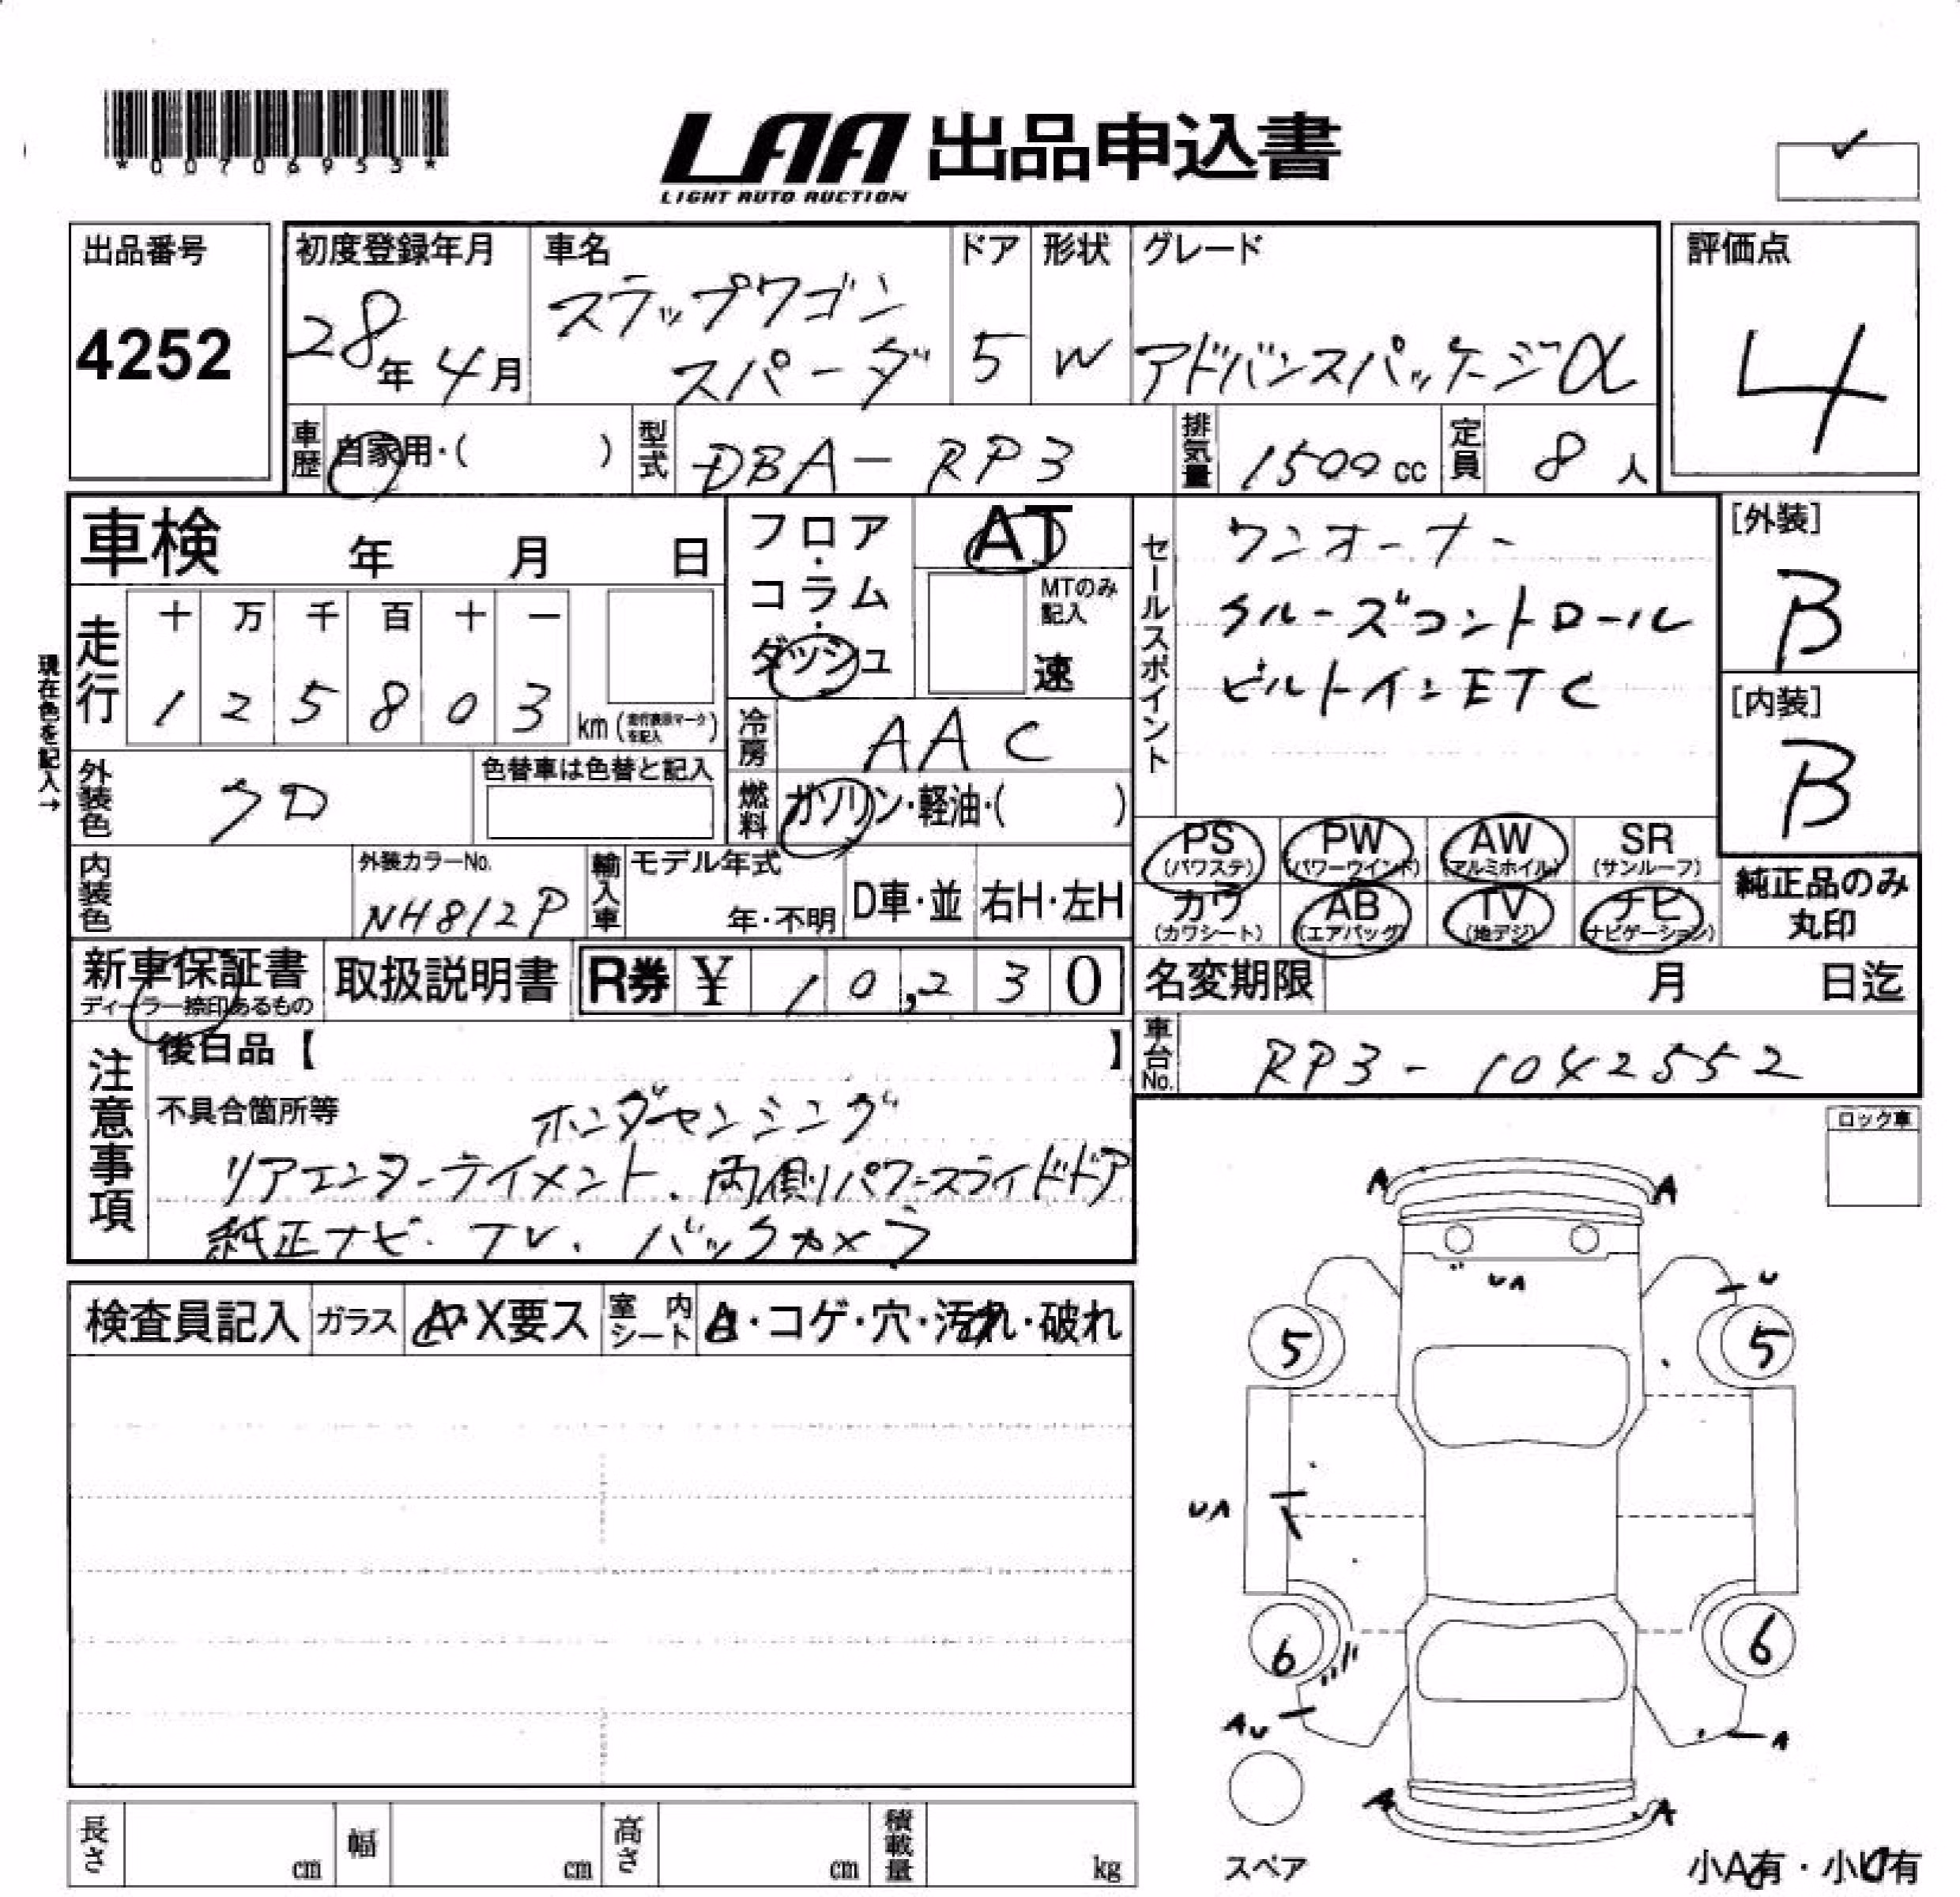 *00706953*
LAA 出品申込書
LIGHT AUTO AUCTION
出品番号
4252
初度登録年月
28年4月
車名
ステップワゴン
スパーダ
ドア
5
形状
W
グレード
アドバンスパッケージα
評価点
4
車歴
自家用・( )
型式
DBA-RP3
排気量
1500cc
定員
8人
車検 年 月 日
フロア・コラム・ダッシュ
AT
MTのみ記入
速
セールスポイント
ワンオーナー
クルーズコントロール
ビルトインETC
[外装]
B
[内装]
B
現在色を記入→
走行
十 万 千 百 十 一
1 2 5 8 0 3
km(走行表示マークを記入)
冷房
AAC
外装色
クロ
色替車は色替と記入
燃料
ガソリン・軽油・( )
PS (パワステ)
PW (パワーウインド)
AW (アルミホイル)
SR (サンルーフ)
カワ (カワシート)
AB (エアバッグ)
TV (地デジ)
ナビ (ナビゲーション)
純正品のみ丸印
内装色
外装カラーNo.
NH812P
輸入車
モデル年式
年・不明
D車・並
右H・左H
新車保証書
ディーラー捺印あるもの
取扱説明書
R券 ¥ 10,230
名変期限 月 日迄
車台No.
RP3-1042552
注意事項
後日品【 】
不具合箇所等
ホンダセンシング
リアエンターテイメント、両側パワースライドドア
純正ナビ・TV、バックカメラ
ロック車
検査員記入
ガラス
A・X要ス
室内シート
・コゲ・穴・汚れ・破れ
A A
UA
U
5 5
UA
6 6
AU
A
A A
スペア
小A有・小U有
長さ cm
幅 cm
高さ cm
積載量 kg